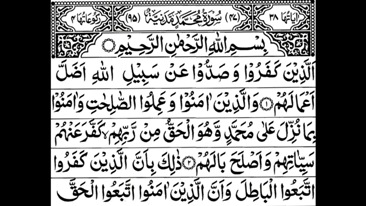 اٰیَاتُهَا ٣٨ (٤٧) سُوْرَةُ مُحَمَّدٍ مَّدَنِیَّةٌ (٩٥) رُكُوْعَاتُهَا ٤
بِسْمِ اللّٰهِ الرَّحْمٰنِ الرَّحِیْمِ
اَلَّذِیْنَ كَفَرُوْا وَ صَدُّوْا عَنْ سَبِیْلِ اللّٰهِ اَضَلَّ
اَعْمَالَهُمْ ۝١ وَالَّذِیْنَ اٰمَنُوْا وَ عَمِلُوا الصّٰلِحٰتِ وَاٰمَنُوْا
بِمَا نُزِّلَ عَلٰى مُحَمَّدٍ وَّهُوَ الْحَقُّ مِنْ رَّبِّهِمْ كَفَّرَ عَنْهُمْ
سَیِّاٰتِهِمْ وَ اَصْلَحَ بَالَهُمْ ۝٢ ذٰلِكَ بِاَنَّ الَّذِیْنَ كَفَرُوا
اتَّبَعُوا الْبَاطِلَ وَ اَنَّ الَّذِیْنَ اٰمَنُوا اتَّبَعُوا الْحَقَّ